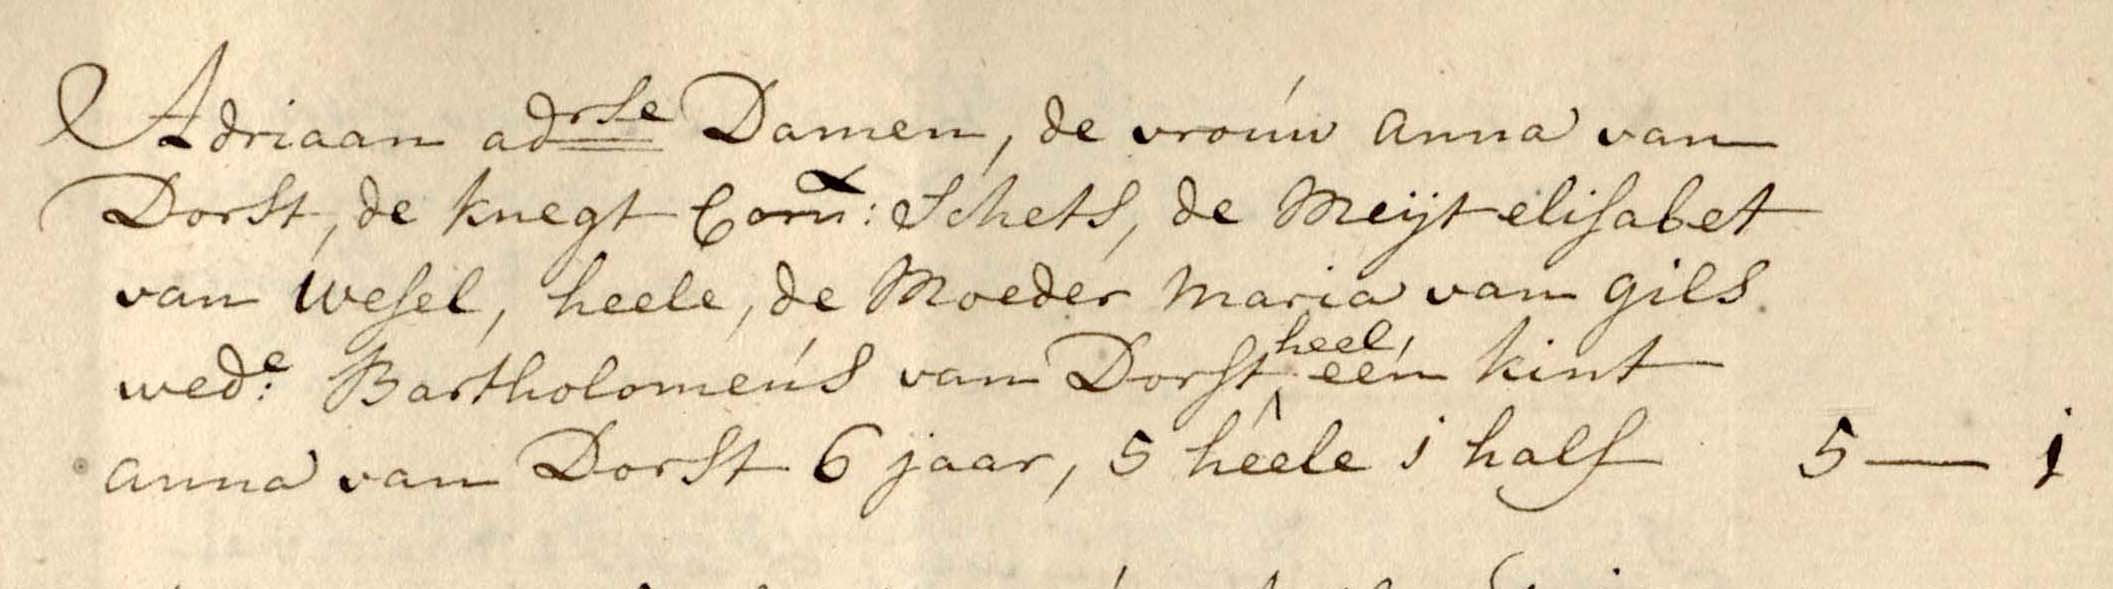 Adriaan adrse Damen, de vrouw anna van
Dorst, de knegt Corn: Schets, de Meijt elisabet
van Wesel, heele, de Moeder Maria van gils
wede: Bartholomeus van Dorst heel, een kint
anna van Dorst 6 jaar, 5 heele 1 half 5 — 1